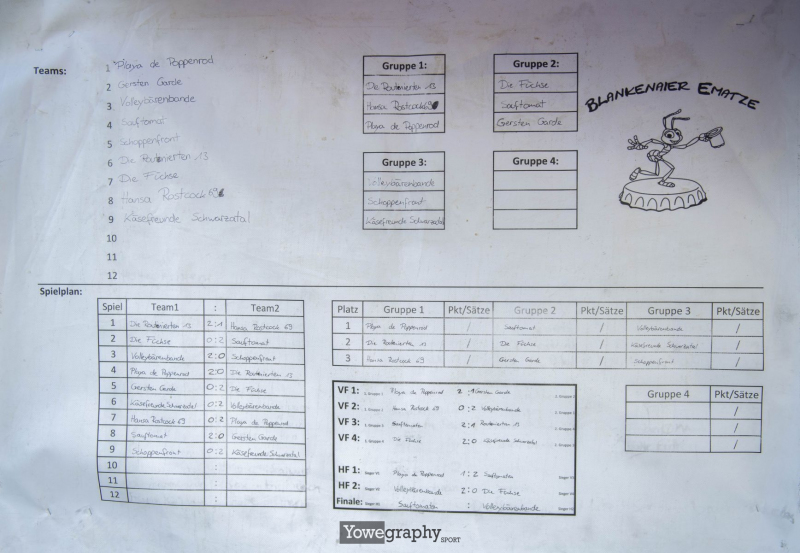 Teams:
1 Playa de Poppenrod
2 Gersten Garde
3 Volleybärenbande
4 Sauftomat
5 Schoppenfront
6 Die Routinierten 13
7 Die Füchse
8 Hansa Rostcock 69
9 Käsefreunde Schwarzatal
10
11
12
Gruppe 1:
Die Routinierten 13
Hansa Rostcock 69
Playa de Poppenrod
Gruppe 2:
Die Füchse
Sauftomat
Gersten Garde
Gruppe 3:
Volleybärenbande
Schoppenfront
Käsefreunde Schwarzatal
Gruppe 4:
BLANKENAIER EMATZE
Spielplan:
Spiel Team1 : Team2
1 Die Routinierten 13 2:1 Hansa Rostcock 69
2 Die Füchse 0:2 Sauftomat
3 Volleybärenbande 2:0 Schoppenfront
4 Playa de Poppenrod 2:0 Die Routinierten 13
5 Gersten Garde 0:2 Die Füchse
6 Käsefreunde Schwarzatal 0:2 Volleybärenbande
7 Hansa Rostcock 69 0:2 Playa de Poppenrod
8 Sauftomat 2:0 Gersten Garde
9 Schoppenfront 0:2 Käsefreunde Schwarzatal
10 :
11 :
12 :
Platz Gruppe 1 Pkt/Sätze Gruppe 2 Pkt/Sätze Gruppe 3 Pkt/Sätze
1 Playa de Poppenrod / Sauftomat / Volleybärenbande /
2 Die Routinierten 13 / Die Füchse / Käsefreunde Schwarzatal /
3 Hansa Rostcock 69 / Gersten Garde / Schoppenfront /
Gruppe 4 Pkt/Sätze
/
/
/
VF 1: Playa de Poppenrod 2 1 Gersten Garde
VF 2: Hansa Rostcock 69 0:2 Volleybärenbande
VF 3: Sauftomaten 2:1 Routinierten 13
VF 4: Die Füchse 2:0 Käsefreunde Schwarzatal
HF 1: Playa de Poppenrod 1:2 Sauftomaten
HF 2: Volleybärenbande 2:0 Die Füchse
Finale: Sauftomaten : Volleybärenbande
Yowegraphy SPORT